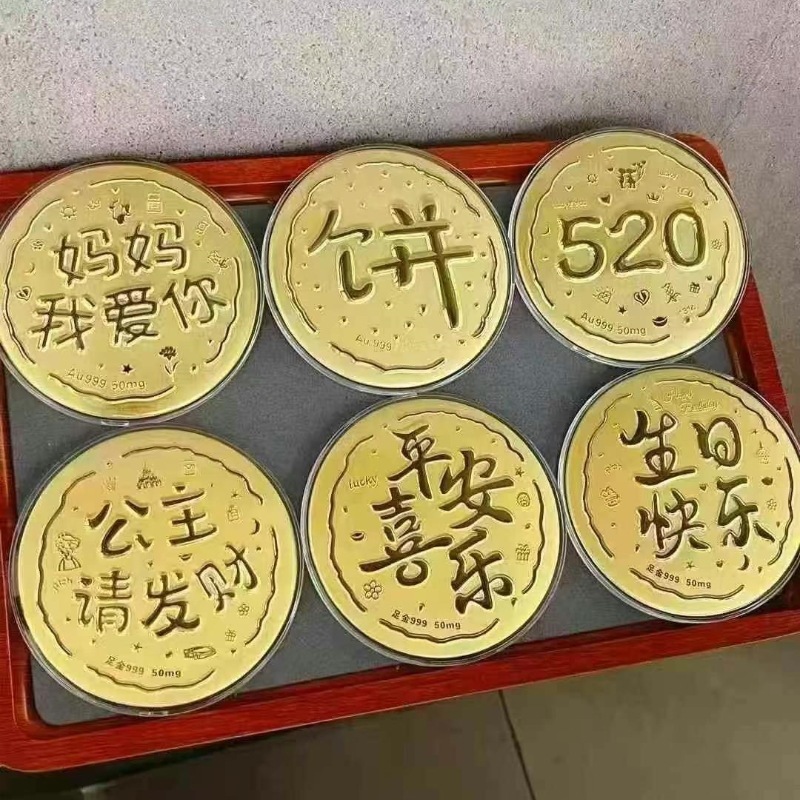 妈妈
我爱你
Au999 50mg
饼
Au999
520
Au999 50mg
公主
请发财
足金999 50mg
lucky
平安
喜乐
足金999 50mg
生日
快乐
足金999 50mg